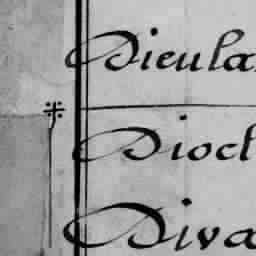 Dieula
Diocl
Diva